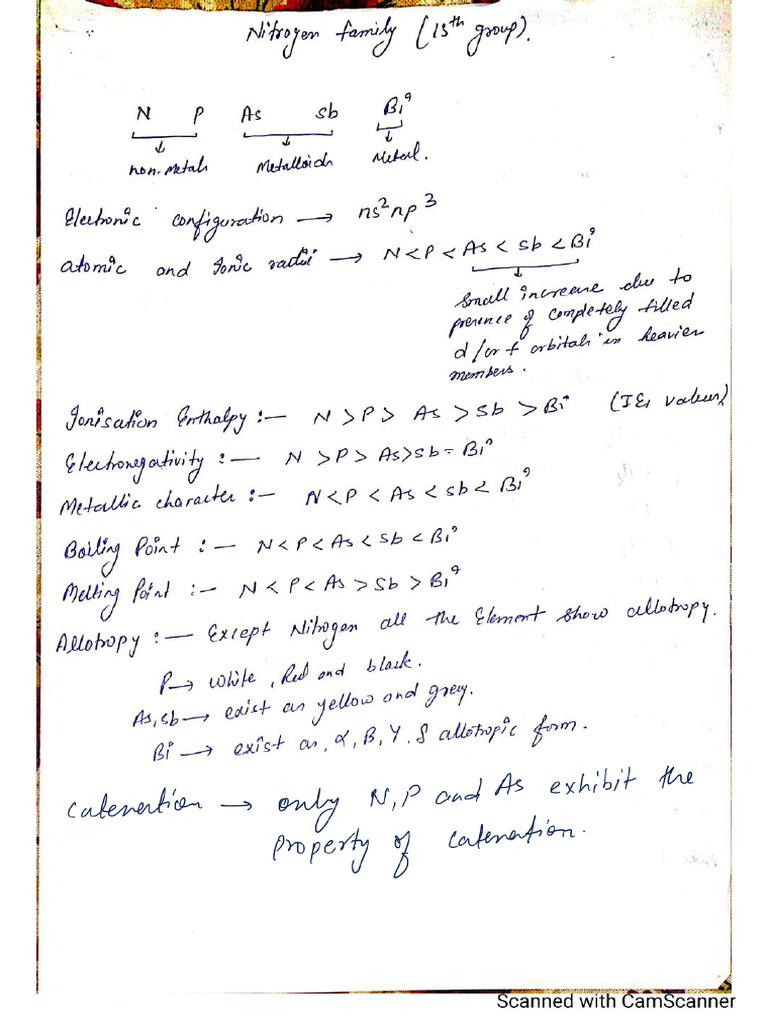 Nitrogen family (15th group).
N P As Sb Bi
↓ ↓ ↓
non-metals Metalloids Metal.
Electronic configuration → ns²np³
Atomic and Ionic radii → N<P<As<Sb<Bi
↓
Small increase due to
presence of completely filled
d/or f orbitals in heavier
members.
Ionisation Enthalpy :— N > P > As > Sb > Bi (IE₁ values)
Electronegativity :— N > P > As > Sb = Bi
Metallic character :— N < P < As < Sb < Bi
Boiling Point :— N < P < As < Sb < Bi
Melting Point :— N < P < As > Sb > Bi
Allotropy :— Except Nitrogen all the Element show allotropy.
P → White, Red and black.
As, Sb → exist as yellow and grey.
Bi → exist as, α, β, γ, δ allotropic form.
Catenation → only N, P and As exhibit the
property of catenation.
Scanned with CamScanner